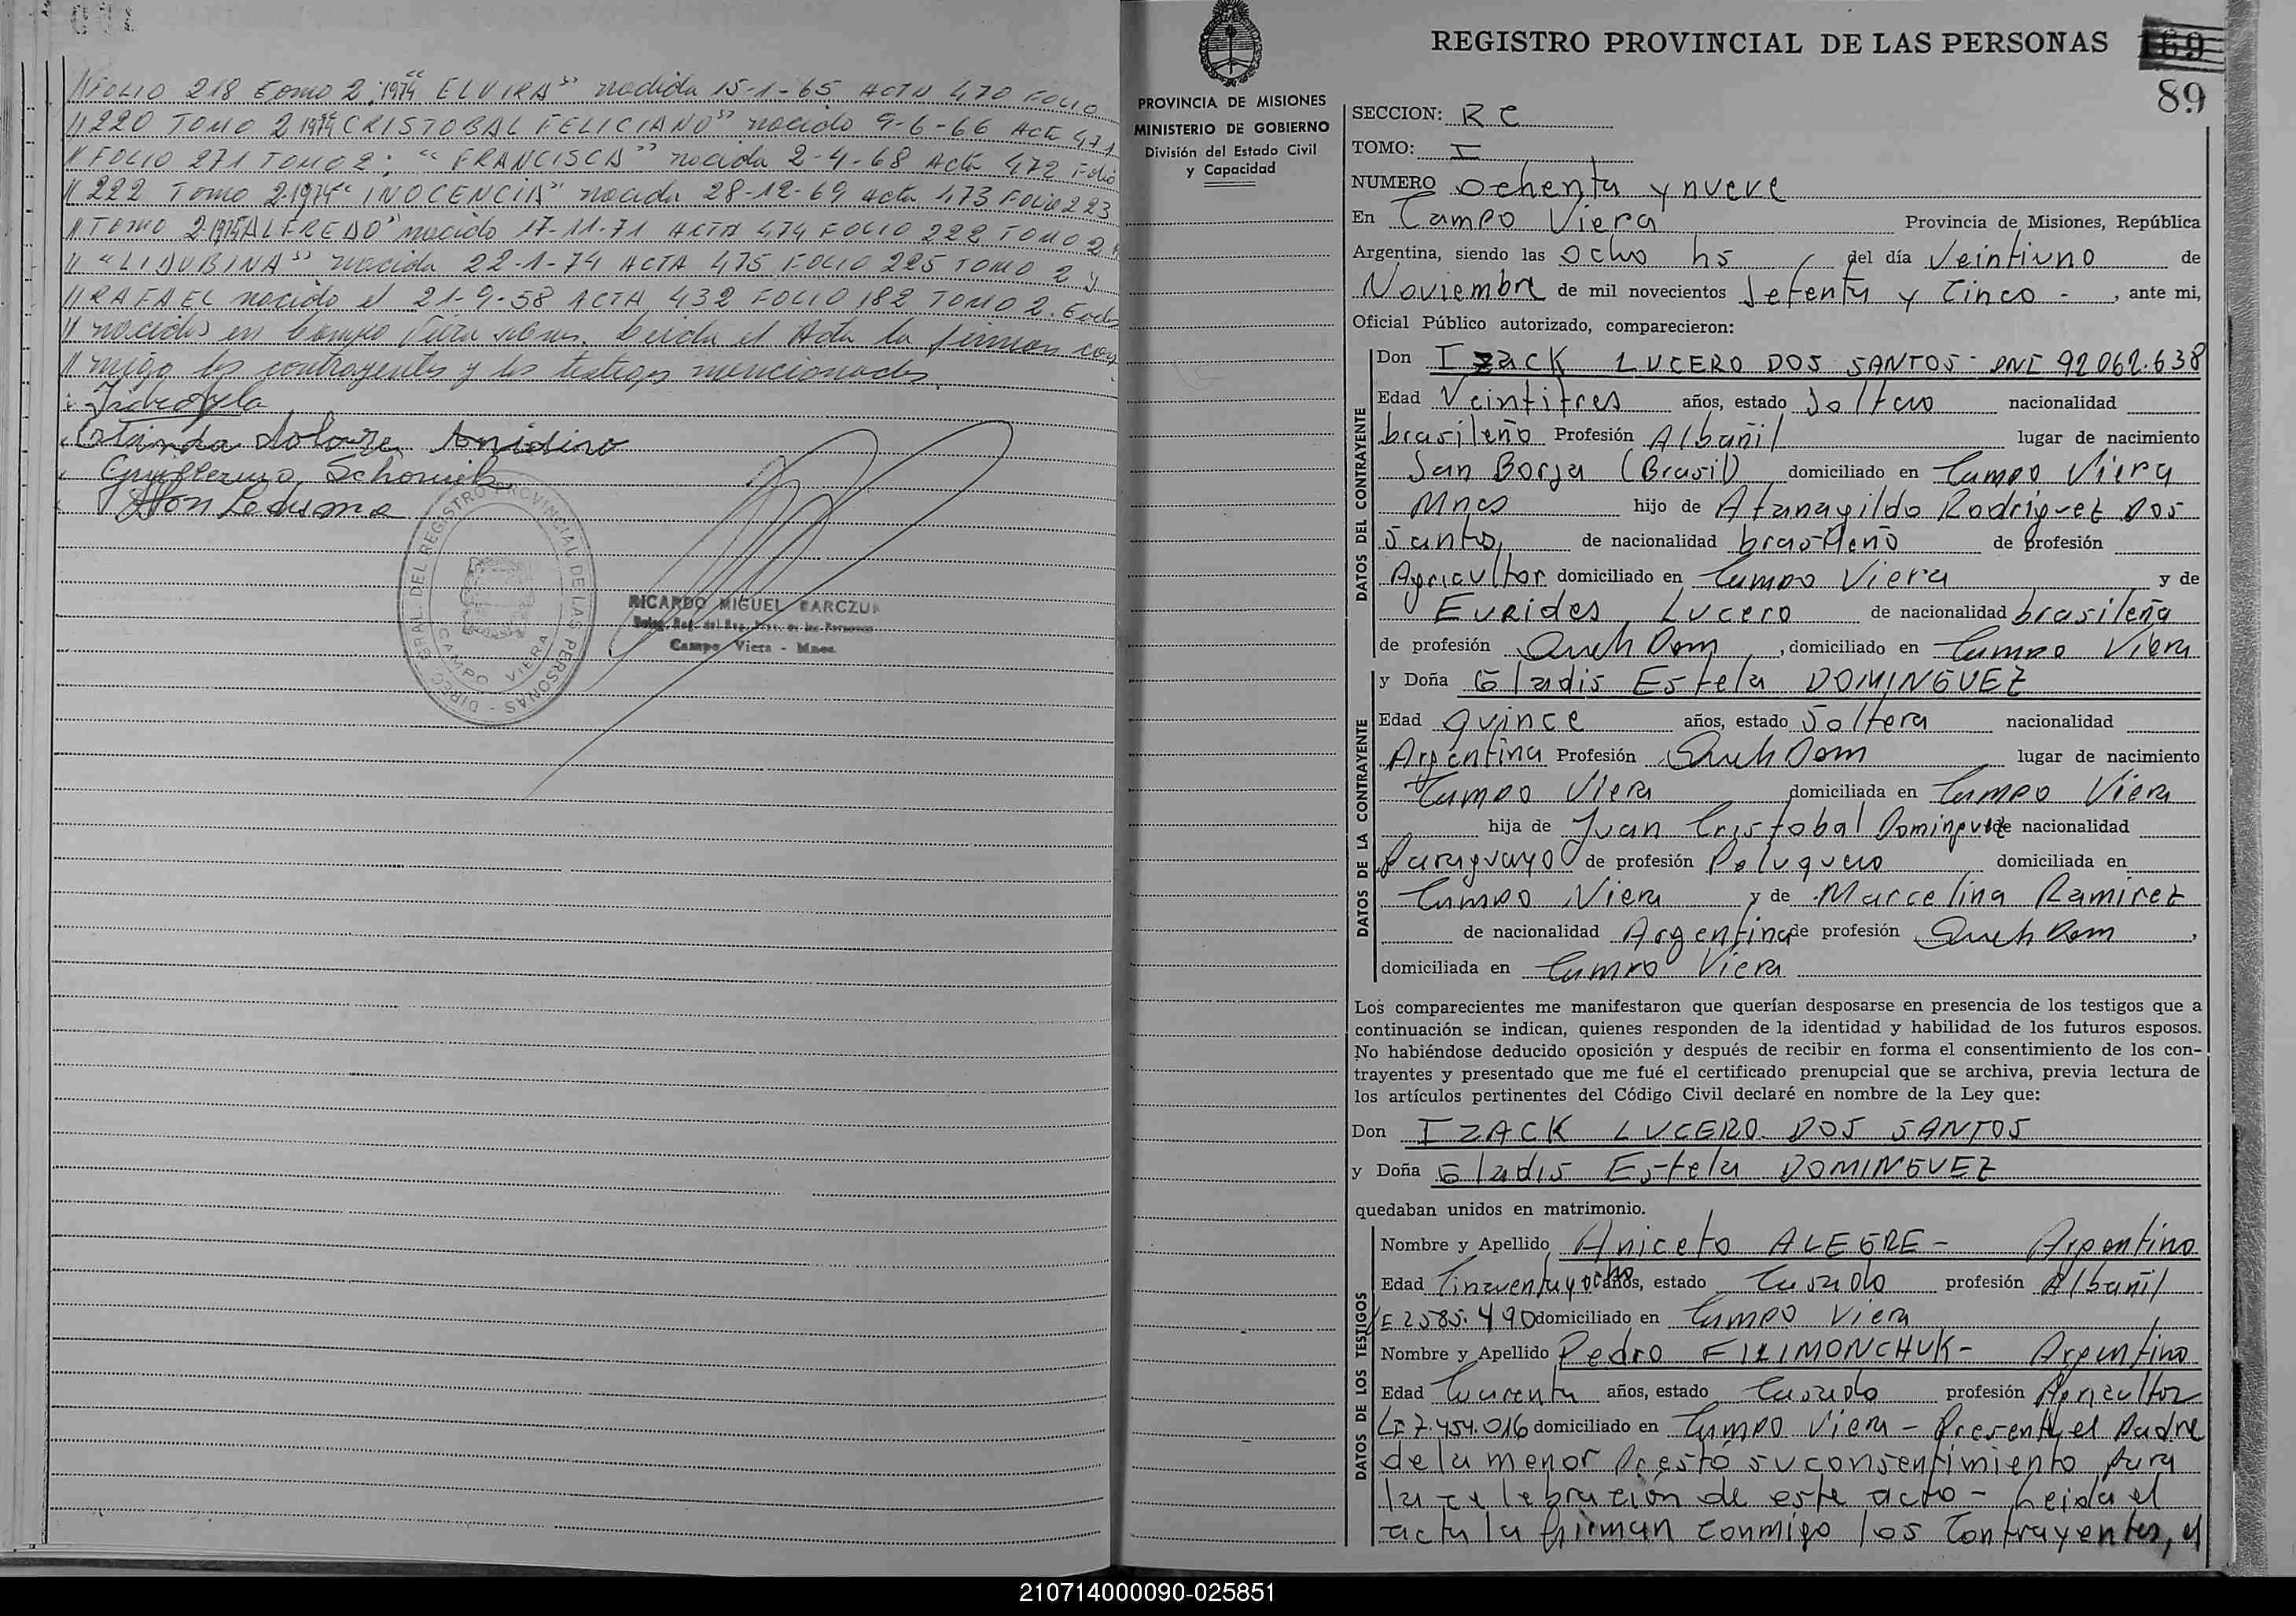 //FOLIO 218 Tomo 2, 1974 "ELVIRA" nacida 15-1-65 ACTA 470 FOLIO
//220 TOMO 2 1974 "CRISTOBAL FELICIANO" nacido 9-6-66 Acta 471
//FOLIO 271 TOMO 2; "FRANCISCA" nacida 2-4-68 Acta 472 Folio
//222 Tomo 2-1974 "INOCENCIA" nacida 28-12-69 Acta 473 Folio 223
//TOMO 2 ALFREDO" nacido 17-11-71 ACTA 474 FOLIO 222 TOMO 2
// "LIDUBINA" nacida 22-1-74 ACTA 475 FOLIO 225 TOMO 2 y
//RAFAEL nacido el 21-9-58 ACTA 432 FOLIO 182 TOMO 2.
// nacidos en Campo Viera Leida el Acta la firman con
// migo los contrayentes y los testigos mencionados.
Guillermo
Ledesma
DIREC. GRAL. DEL REGISTRO PROVINCIAL DE LAS PERSONAS -
CAMPO VIERA
RICARDO MIGUEL
Campo Viera - Mnes.
REGISTRO PROVINCIAL DE LAS PERSONAS
169
89
PROVINCIA DE MISIONES
MINISTERIO DE GOBIERNO
División del Estado Civil
y Capacidad
SECCION: RC
TOMO: I
NUMERO Ochenta y nueve
En Campo Viera Provincia de Misiones, República
Argentina, siendo las ocho hs del día Veintiuno de
Noviembre de mil novecientos Setenta y Cinco - , ante mi,
Oficial Público autorizado, comparecieron:
DATOS DEL CONTRAYENTE
Don IZACK LUCERO DOS SANTOS - DNI 92062.638
Edad Veintitres años, estado Soltero nacionalidad
brasileño Profesión Albañil lugar de nacimiento
San Borja (Brasil) domiciliado en Campo Viera
Mnes hijo de Atanagildo Rodriguez Dos
Santos de nacionalidad brasileño de profesión
Agricultor domiciliado en Campo Viera y de
Eurides Lucero de nacionalidad brasileña
de profesión Queh Dom , domiciliado en Campo Viera
DATOS DE LA CONTRAYENTE
y Doña Gladis Estela DOMINGUEZ
Edad quince años, estado Soltera nacionalidad
Argentina Profesión Queh Dom lugar de nacimiento
Campo Viera domiciliada en Campo Viera
hija de Juan Cristobal Dominguez de nacionalidad
Paraguayo de profesión Peluquero domiciliada en
Campo Viera y de Marcelina Ramirez
de nacionalidad Argentina de profesión Queh Dom ,
domiciliada en Campo Viera
Los comparecientes me manifestaron que querían desposarse en presencia de los testigos que a
continuación se indican, quienes responden de la identidad y habilidad de los futuros esposos.
No habiéndose deducido oposición y después de recibir en forma el consentimiento de los con-
trayentes y presentado que me fué el certificado prenupcial que se archiva, previa lectura de
los artículos pertinentes del Código Civil declaré en nombre de la Ley que:
Don IZACK LUCERO DOS SANTOS
y Doña Gladis Estela DOMINGUEZ
quedaban unidos en matrimonio.
DATOS DE LOS TESTIGOS
Nombre y Apellido Aniceto ALEGRE - Argentino
Edad Cincuenta y ocho años, estado Casado profesión Albañil
LE 2585.490 domiciliado en Campo Viera
Nombre y Apellido Pedro FILIMONCHUK - Argentino
Edad Cuarenta años, estado Casado profesión Agricultor
LE 7.454.016 domiciliado en Campo Viera - Presente el Padre
de la menor Prestó su consentimiento para
la celebracion de este acto - Leida el
acta la firman conmigo los Contrayentes, el
210714000090-025851